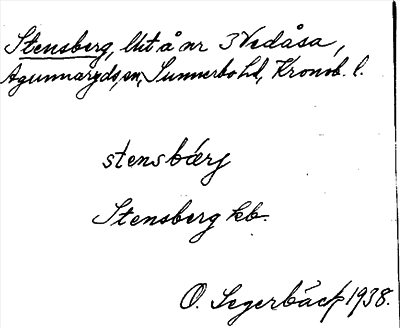 Stensberg, lht å nr 3 Vedåsa,
Agunnaryds sn, Sunnerbo hd, Kronob. l.
stensbærj
Stensberg kb.
O. Segerbäck 1938.